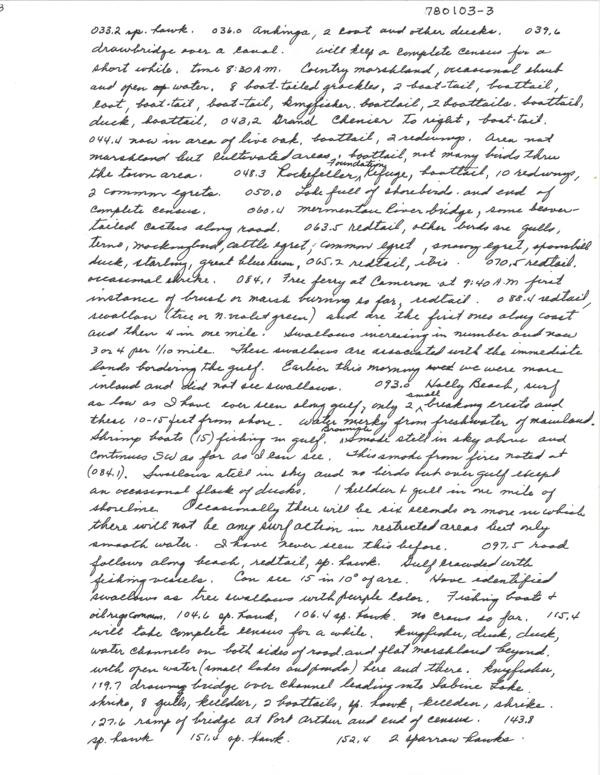 780103-3
033.2 sp. hawk. 036.0 Anhinga, 2 coot and other ducks. 039.6
drawbridge over a canal. will keep a complete census for a
short while. time 8:30 A.M. Country marshland, occasional shrub
and open water. 8 boat-tailed grackles, 2 boat-tail, boattail,
coot, boat-tail, boat-tail, kingfisher. boattail, 2 boattails. boattail,
duck, boattail, 043.2 Grand Chenier to right, boat-tail.
044.4 now in area of live oak, boattail, 2 redwings. Area not
marshland but cultivated areas, boattail, not many birds thru
the town area. 048.3 Rockefeller Foundation Refuge, boattail, 10 redwings,
2 common egrets. 050.0 Lake full of shorebirds and end of
complete census. 060.4 Mermentau River bridge, some beaver-
tailed castors along road. 063.5 redtail, other birds are gulls,
terns, mockingbird, cattle egret, common egret, snowy egret, spoonbill
duck, starling, great blue heron, 065.2 redtail, ibis. 070.5 redtail.
occasional shrike. 084.1 Free ferry at Cameron at 9:40 A.M. first
instance of brush or marsh burning so far, redtail. 088.4 redtail,
swallow (tree or n. violet green) and are the first ones along coast
and then 4 in one mile. Swallows increasing in number and now
3 or 4 per 1/10 mile. These swallows are associated with the immediate
lands bordering the gulf. Earlier this morning we were more
inland and did not see swallows. 093.0 Holly Beach, surf
as low as I have ever seen along gulf, only 2 small breaking crests and
these 10-15 feet from shore. Water murky from freshwater of mainland.
Shrimp boats (15) fishing in gulf. Brownish smoke still in sky above and
continues SW as far as I can see. This smoke from fires noted at
(084.1). Swallows still in sky and no birds but over gulf except
an occasional flock of ducks. 1 killdeer & gull in one mile of
shoreline. Occasionally there will be six seconds or more in which
there will not be any surf action in restricted areas but only
smooth water. I have never seen this before. 097.5 road
follows along beach, redtail, sp. hawk. Gulf crowded with
fishing vessels. Can see 15 in 10° of arc. Have identified
swallows as tree swallows with purple color. Fishing boats &
oil rigs common. 104.6 sp. hawk, 106.4 sp. hawk. No crows so far. 115.4
will take complete census for a while. kingfisher, duck, duck,
water channels on both sides of road and flat marshland beyond,
with open water (small lakes and ponds) here and there. kingfisher,
119.7 drawing bridge over channel leading into Sabine Lake.
shrike, 8 gulls, killdeer, 2 boattails, sp. hawk, killdeer, shrike.
127.6 ramp of bridge at Port Arthur and end of census. 143.8
sp. hawk 151.4 sp. hawk. 152.4 2 sparrow hawks.